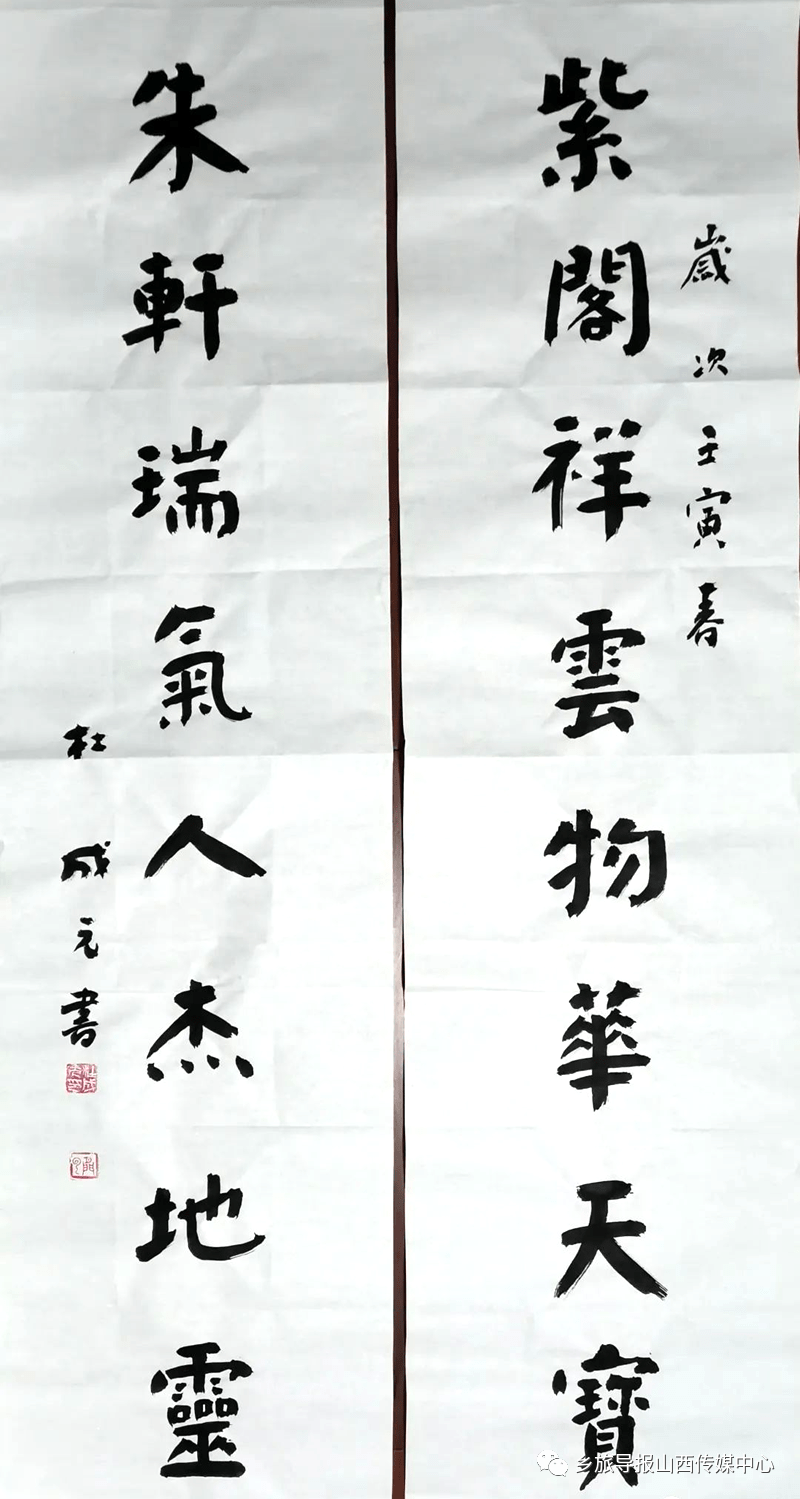 歲次壬寅春
紫閣祥雲物華天寶
朱軒瑞氣人杰地靈
杜成元書
乡旅导报山西传媒中心